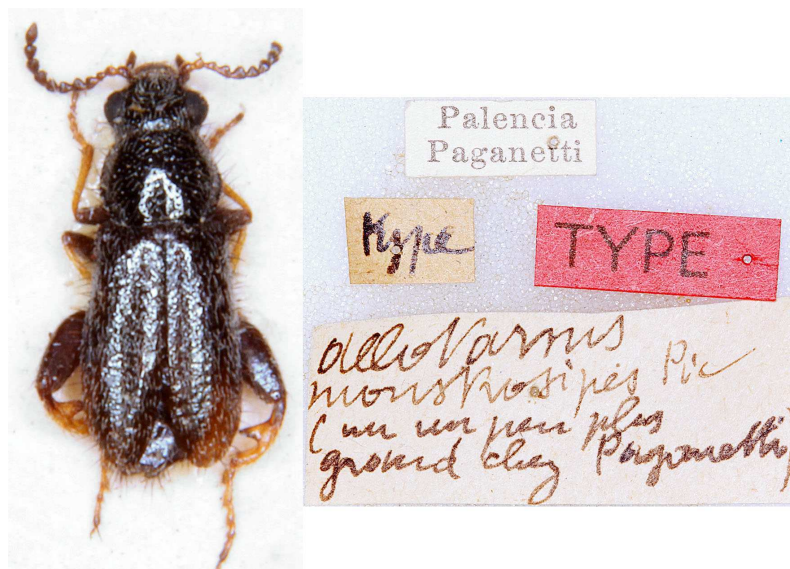 Palencia
Paganetti
type
TYPE
allotarsus
monstrosipes Pic
(vu un peu plus
grand chez Paganetti)